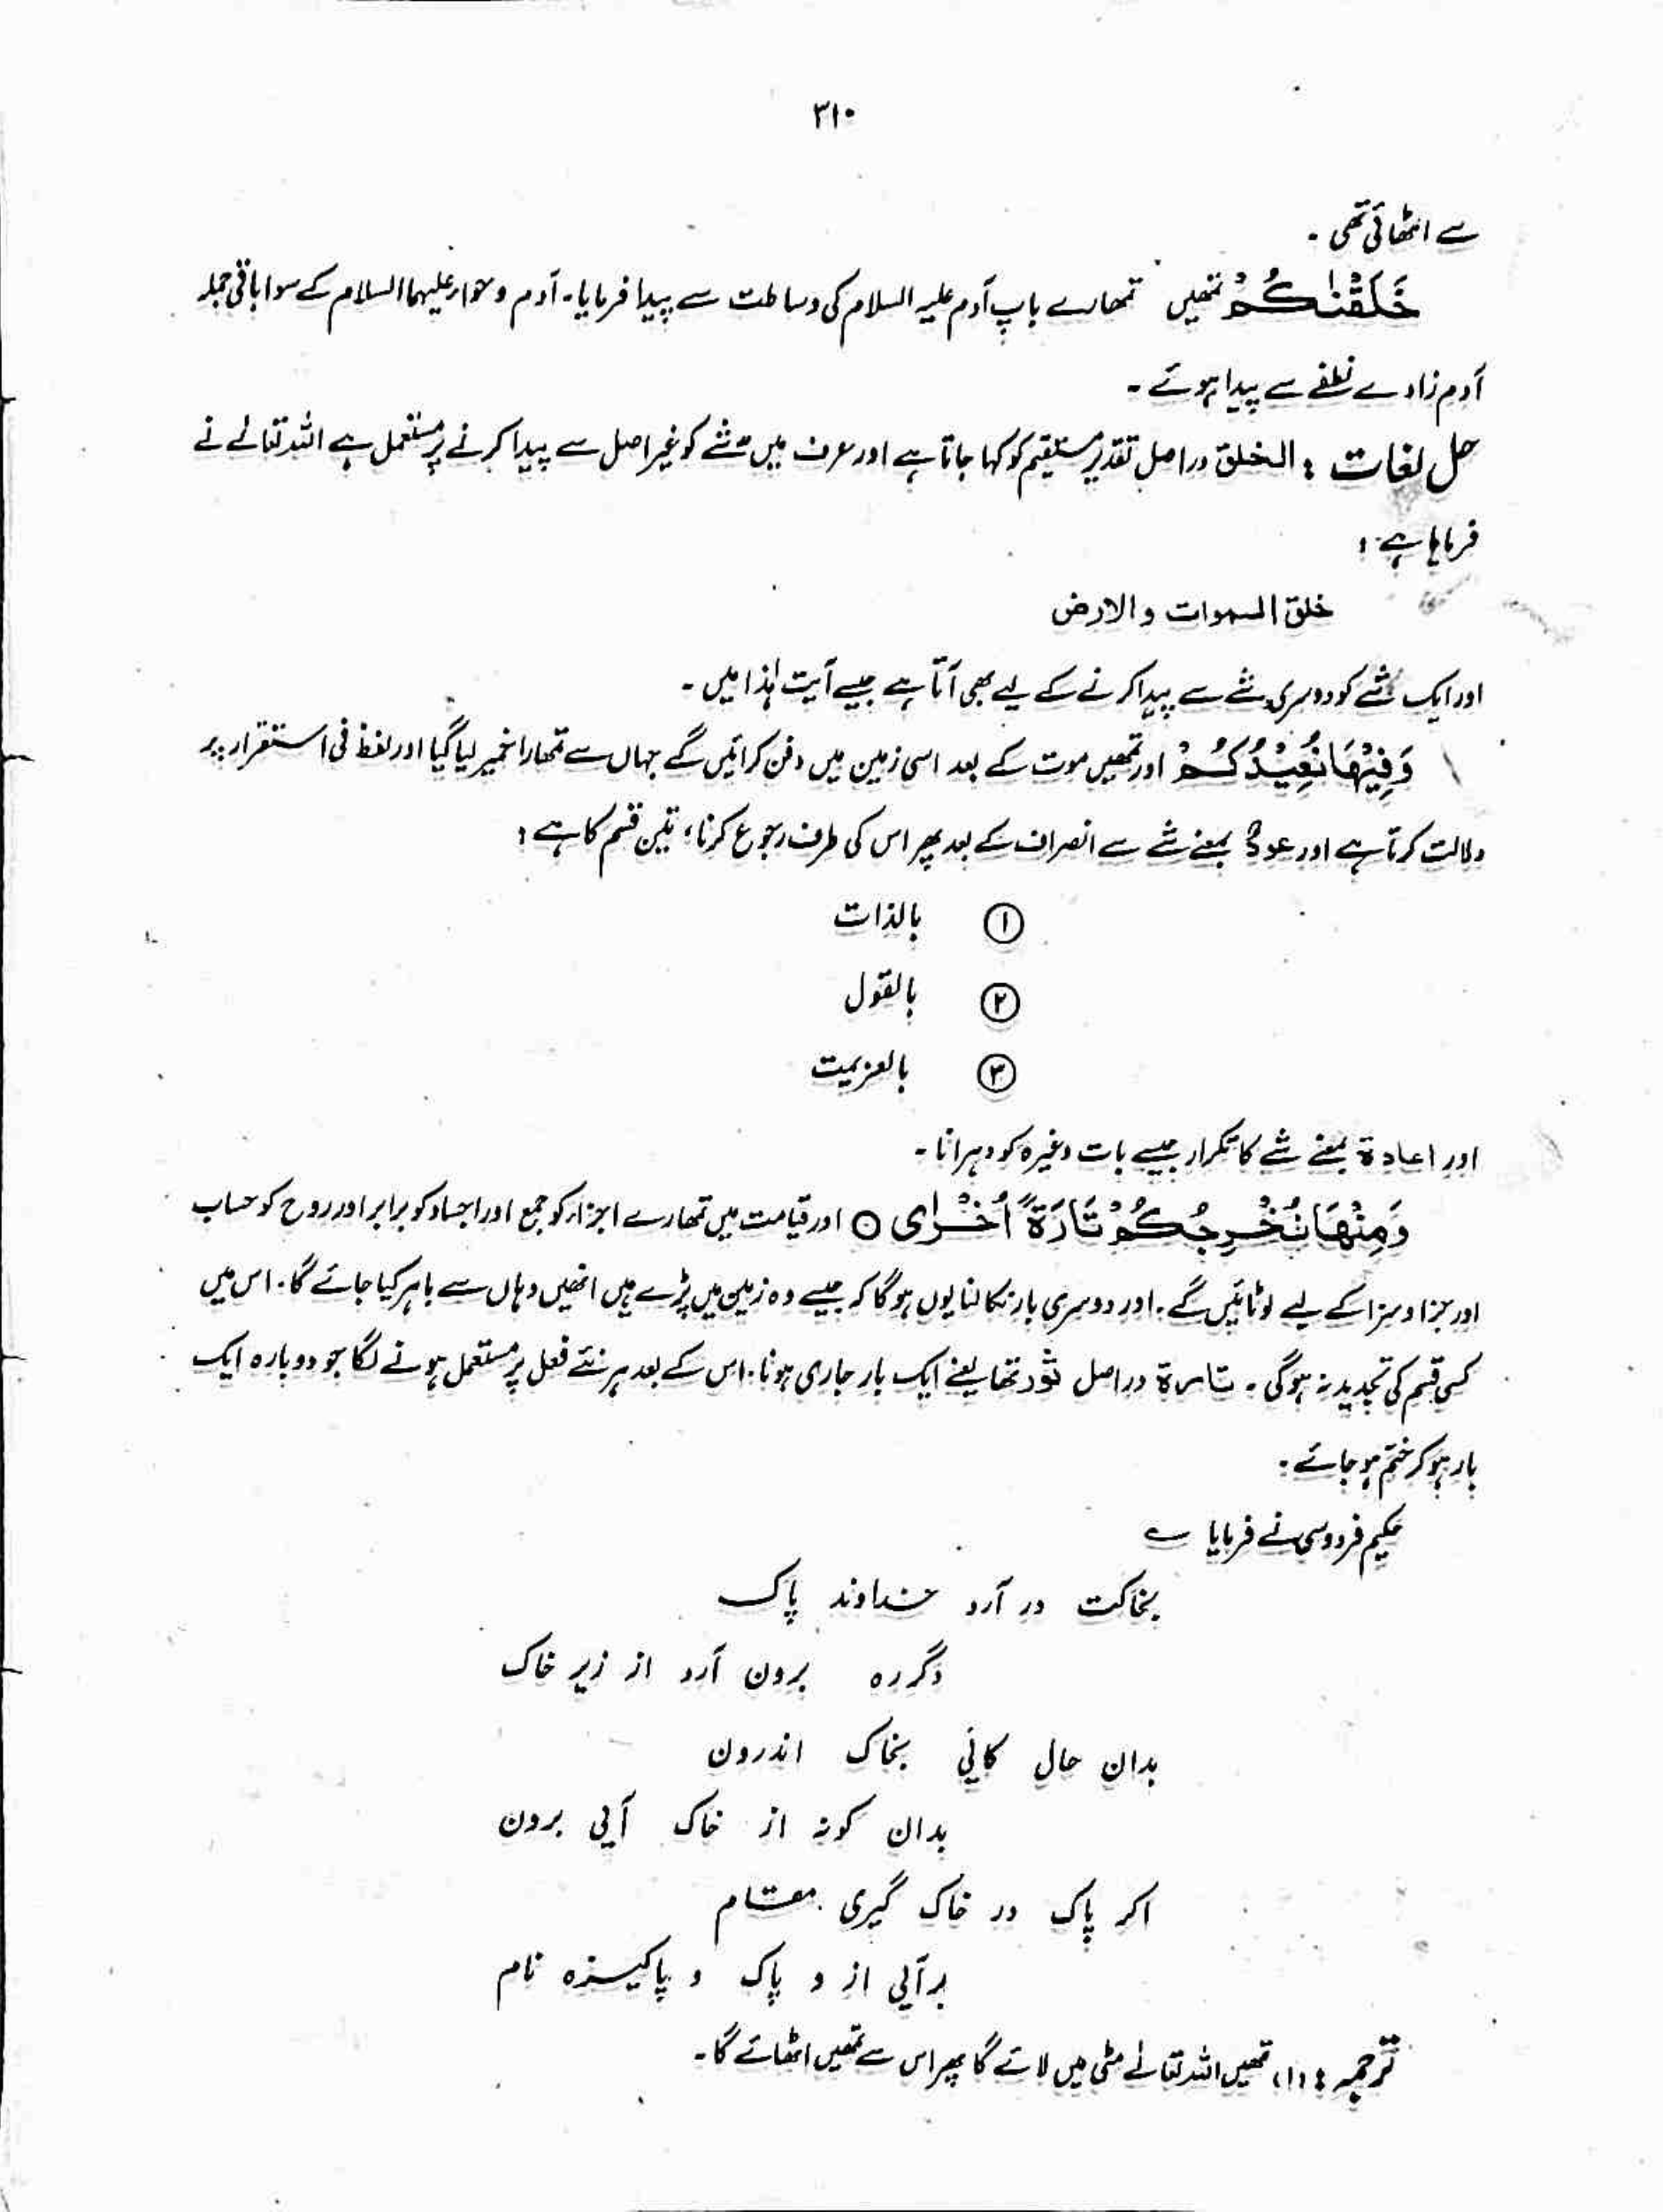 ۳۱۰
سے اٹھائی تھی ۔
خَلَقْنٰكُمْ تمھیں تمھارے باپ آدم علیہ السلام کی وساطت سے پیدا فرمایا۔ آدم و حوا علیہما السلام کے سوا باقی جملہ
آدم زادے نطفے سے پیدا ہوئے ۔
حل لغات : الخلق دراصل تقدیر مستقیم کو کہا جاتا ہے اور عرف میں شے کو غیر اصل سے پیدا کرنے پر مستعمل ہے اللہ تعالے نے
فرمایا ہے :
خلق السموات والارض
اور ایک شے کو دوسری شے سے پیدا کرنے کے لیے بھی آتا ہے جیسے آیت ہٰذا میں ۔
وَفِيْهَا نُعِيْدُكُمْ اور تمھیں موت کے بعد اسی زمین میں دفن کرائیں گے جہاں سے تمھارا خمیر لیا گیا اور لفظ فی استقرار پر
دلالت کرتا ہے اور عود بمعنے شے سے انصراف کے بعد پھر اس کی طرف رجوع کرنا ؛ تین قسم کا ہے :
① بالذات
② بالقول
③ بالعزیمت
اور اعادة بمعنے شے کا تکرار جیسے بات وغیرہ کو دہرانا ۔
وَمِنْهَا نُخْرِجُكُمْ تَارَةً اُخْرٰى ○ اور قیامت میں تمھارے اجزاء کو جمع اور اجساد کو برابر اور روح کو حساب
اور جزا و سزا کے لیے لوٹائیں گے ۔ اور دوسری بار نکالنا یوں ہوگا کہ جیسے وہ زمین میں پڑے ہیں انھیں وہاں سے باہر کیا جائے گا ۔ اس میں
کسی قسم کی تجدید نہ ہوگی ۔ تارة دراصل تود تھا یعنے ایک بار جاری ہونا ۔ اس کے بعد ہر نئے فعل پر مستعمل ہونے لگا جو دوبارہ ایک
بار ہو کر ختم ہو جائے ۔
حکیم فردوسی نے فرمایا ے
بخاکت در آرد خداوند پاک
دگر رہ برون آرد از زیر خاک
بدان حال کائی بخاک اندرون
بدان کونہ از خاک آئی برون
اکر پاک در خاک گیری مقام
برآئی از و پاک و پاکیزہ نام
ترجمہ : (۱) تمھیں اللہ تعالے مٹی میں لائے گا پھر اس سے تمھیں اٹھائے گا ۔